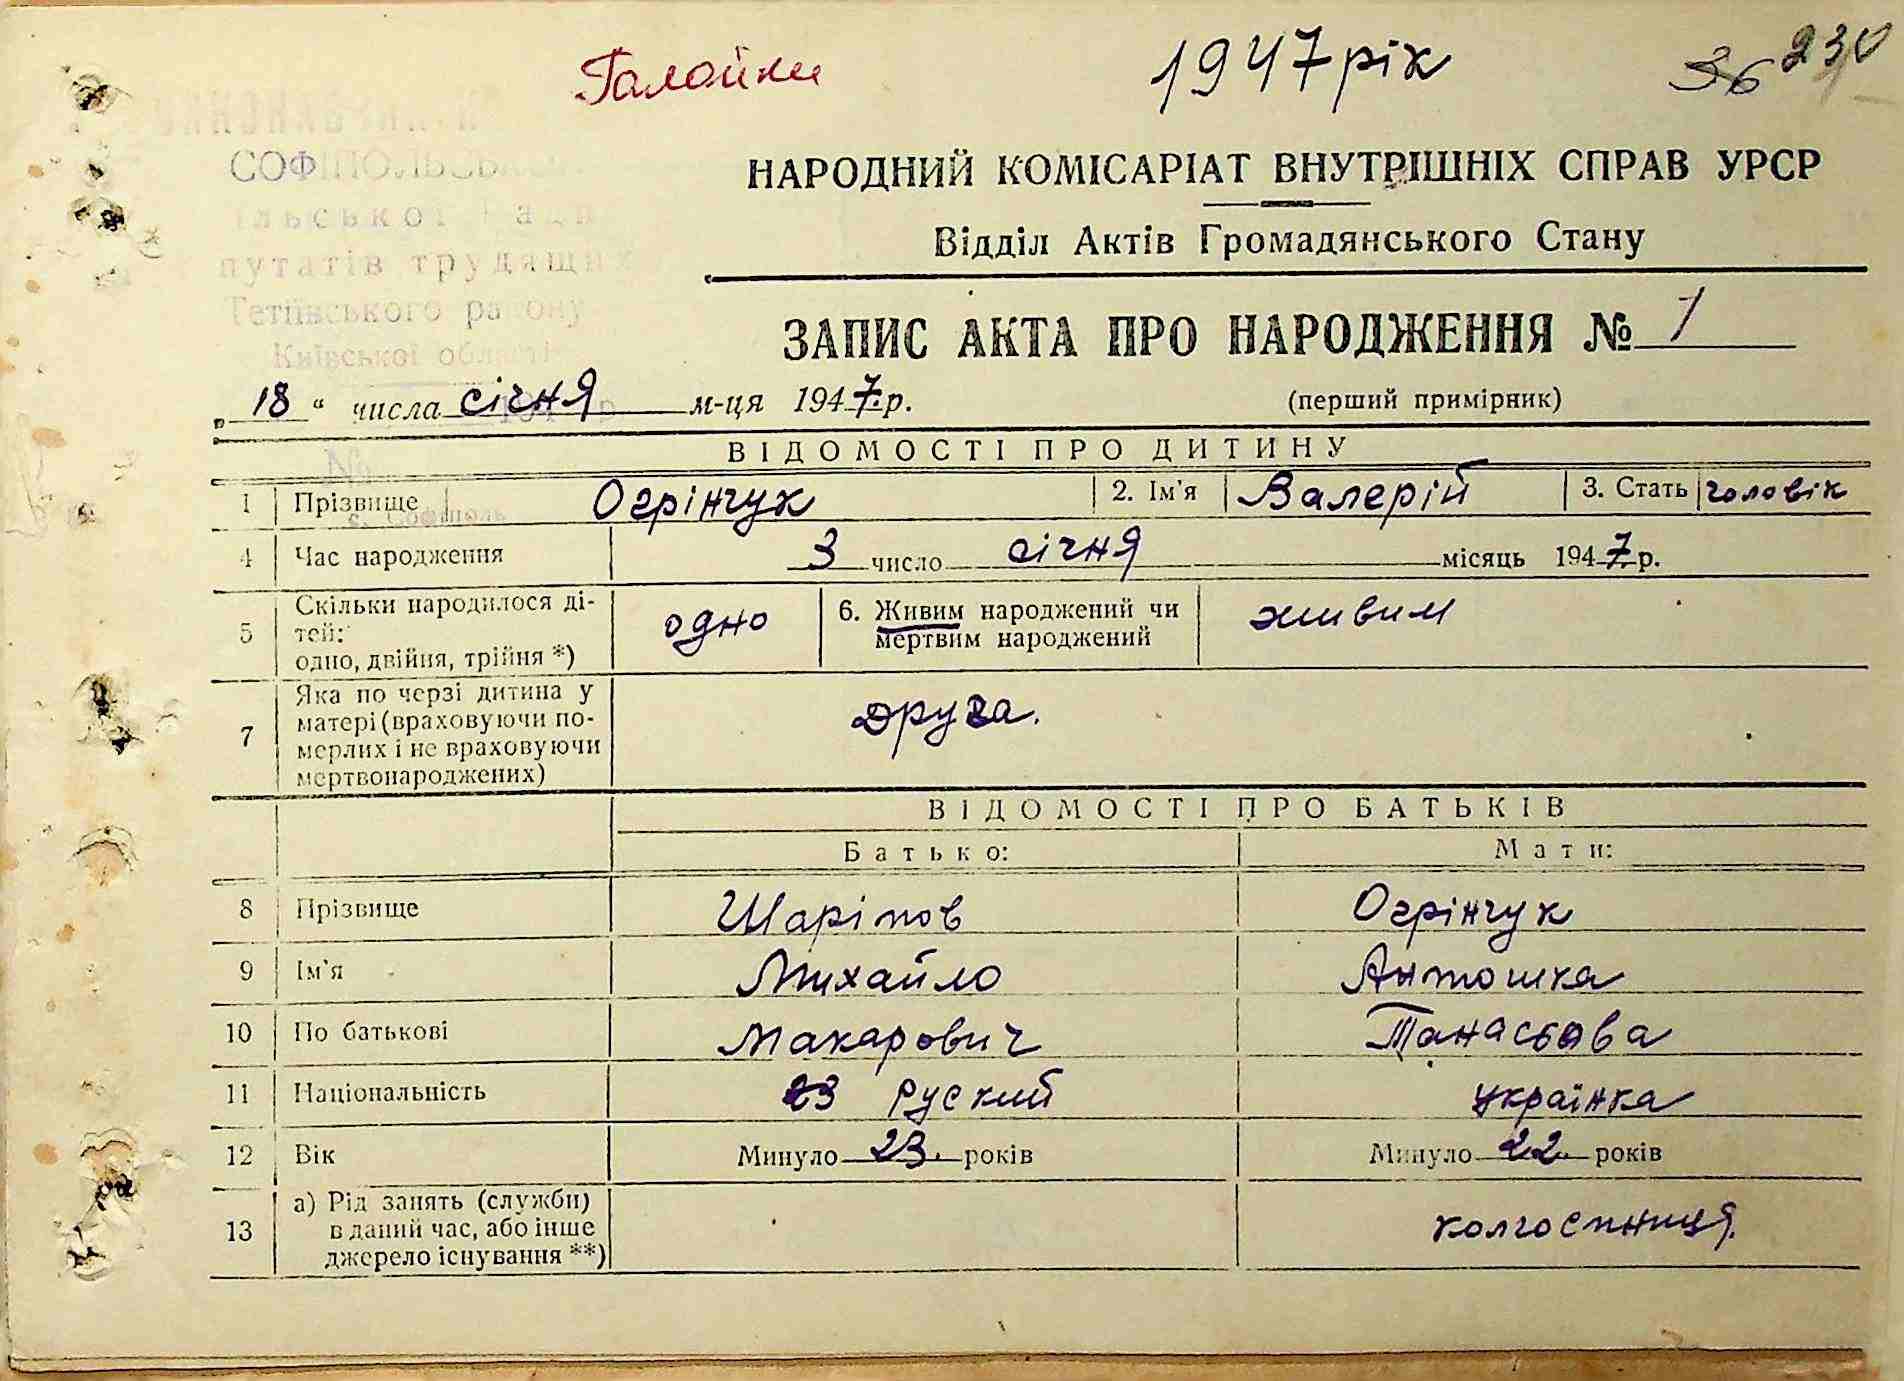 Галайки
1947 рік
36 230
СОФІПОЛЬСЬК
ільської Ради
путатів трудящих
Тетіївського району
Київської області
НАРОДНИЙ КОМІСАРІАТ ВНУТРІШНІХ СПРАВ УРСР
Відділ Актів Громадянського Стану
ЗАПИС АКТА ПРО НАРОДЖЕННЯ № 1
„ 18 “ числа січня м-ця 1947. р. (перший примірник)
№
с. Софіполь
ВІДОМОСТІ ПРО ДИТИНУ
1 Прізвище Огрінчук 2. Ім'я Валерій 3. Стать чоловік
4 Час народження 3 число січня місяць 1947. р.
5 Скільки народилося ді-
тей:
одно, двійня, трійня *) одно 6. Живим народжений чи
мертвим народжений живим
7 Яка по черзі дитина у
матері (враховуючи по-
мерлих і не враховуючи
мертвонароджених) друга.
ВІДОМОСТІ ПРО БАТЬКІВ
Батько: Мати:
8 Прізвище Шаріпов Огрінчук
9 Ім'я Михайло Антошка
10 По батькові Макарович Танасьова
11 Національність 23 руский українка
12 Вік Минуло 23. років Минуло 22. років
13 а) Рід занять (служби)
в даний час, або інше
джерело існування **) колгоспниця.